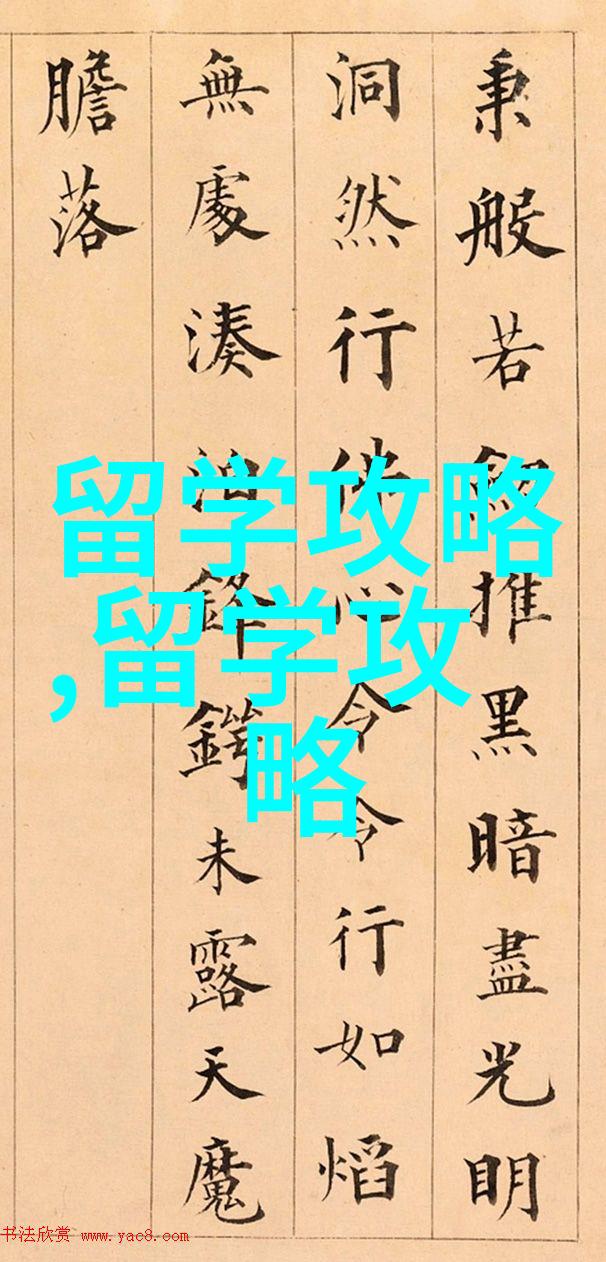 秉般若推黑暗盡光明
洞然行心令令行如熖
無處湊泊鋒鍔未露天魔
膽落
留学攻略
,留学攻
略
书法欣赏 www.yac8.com